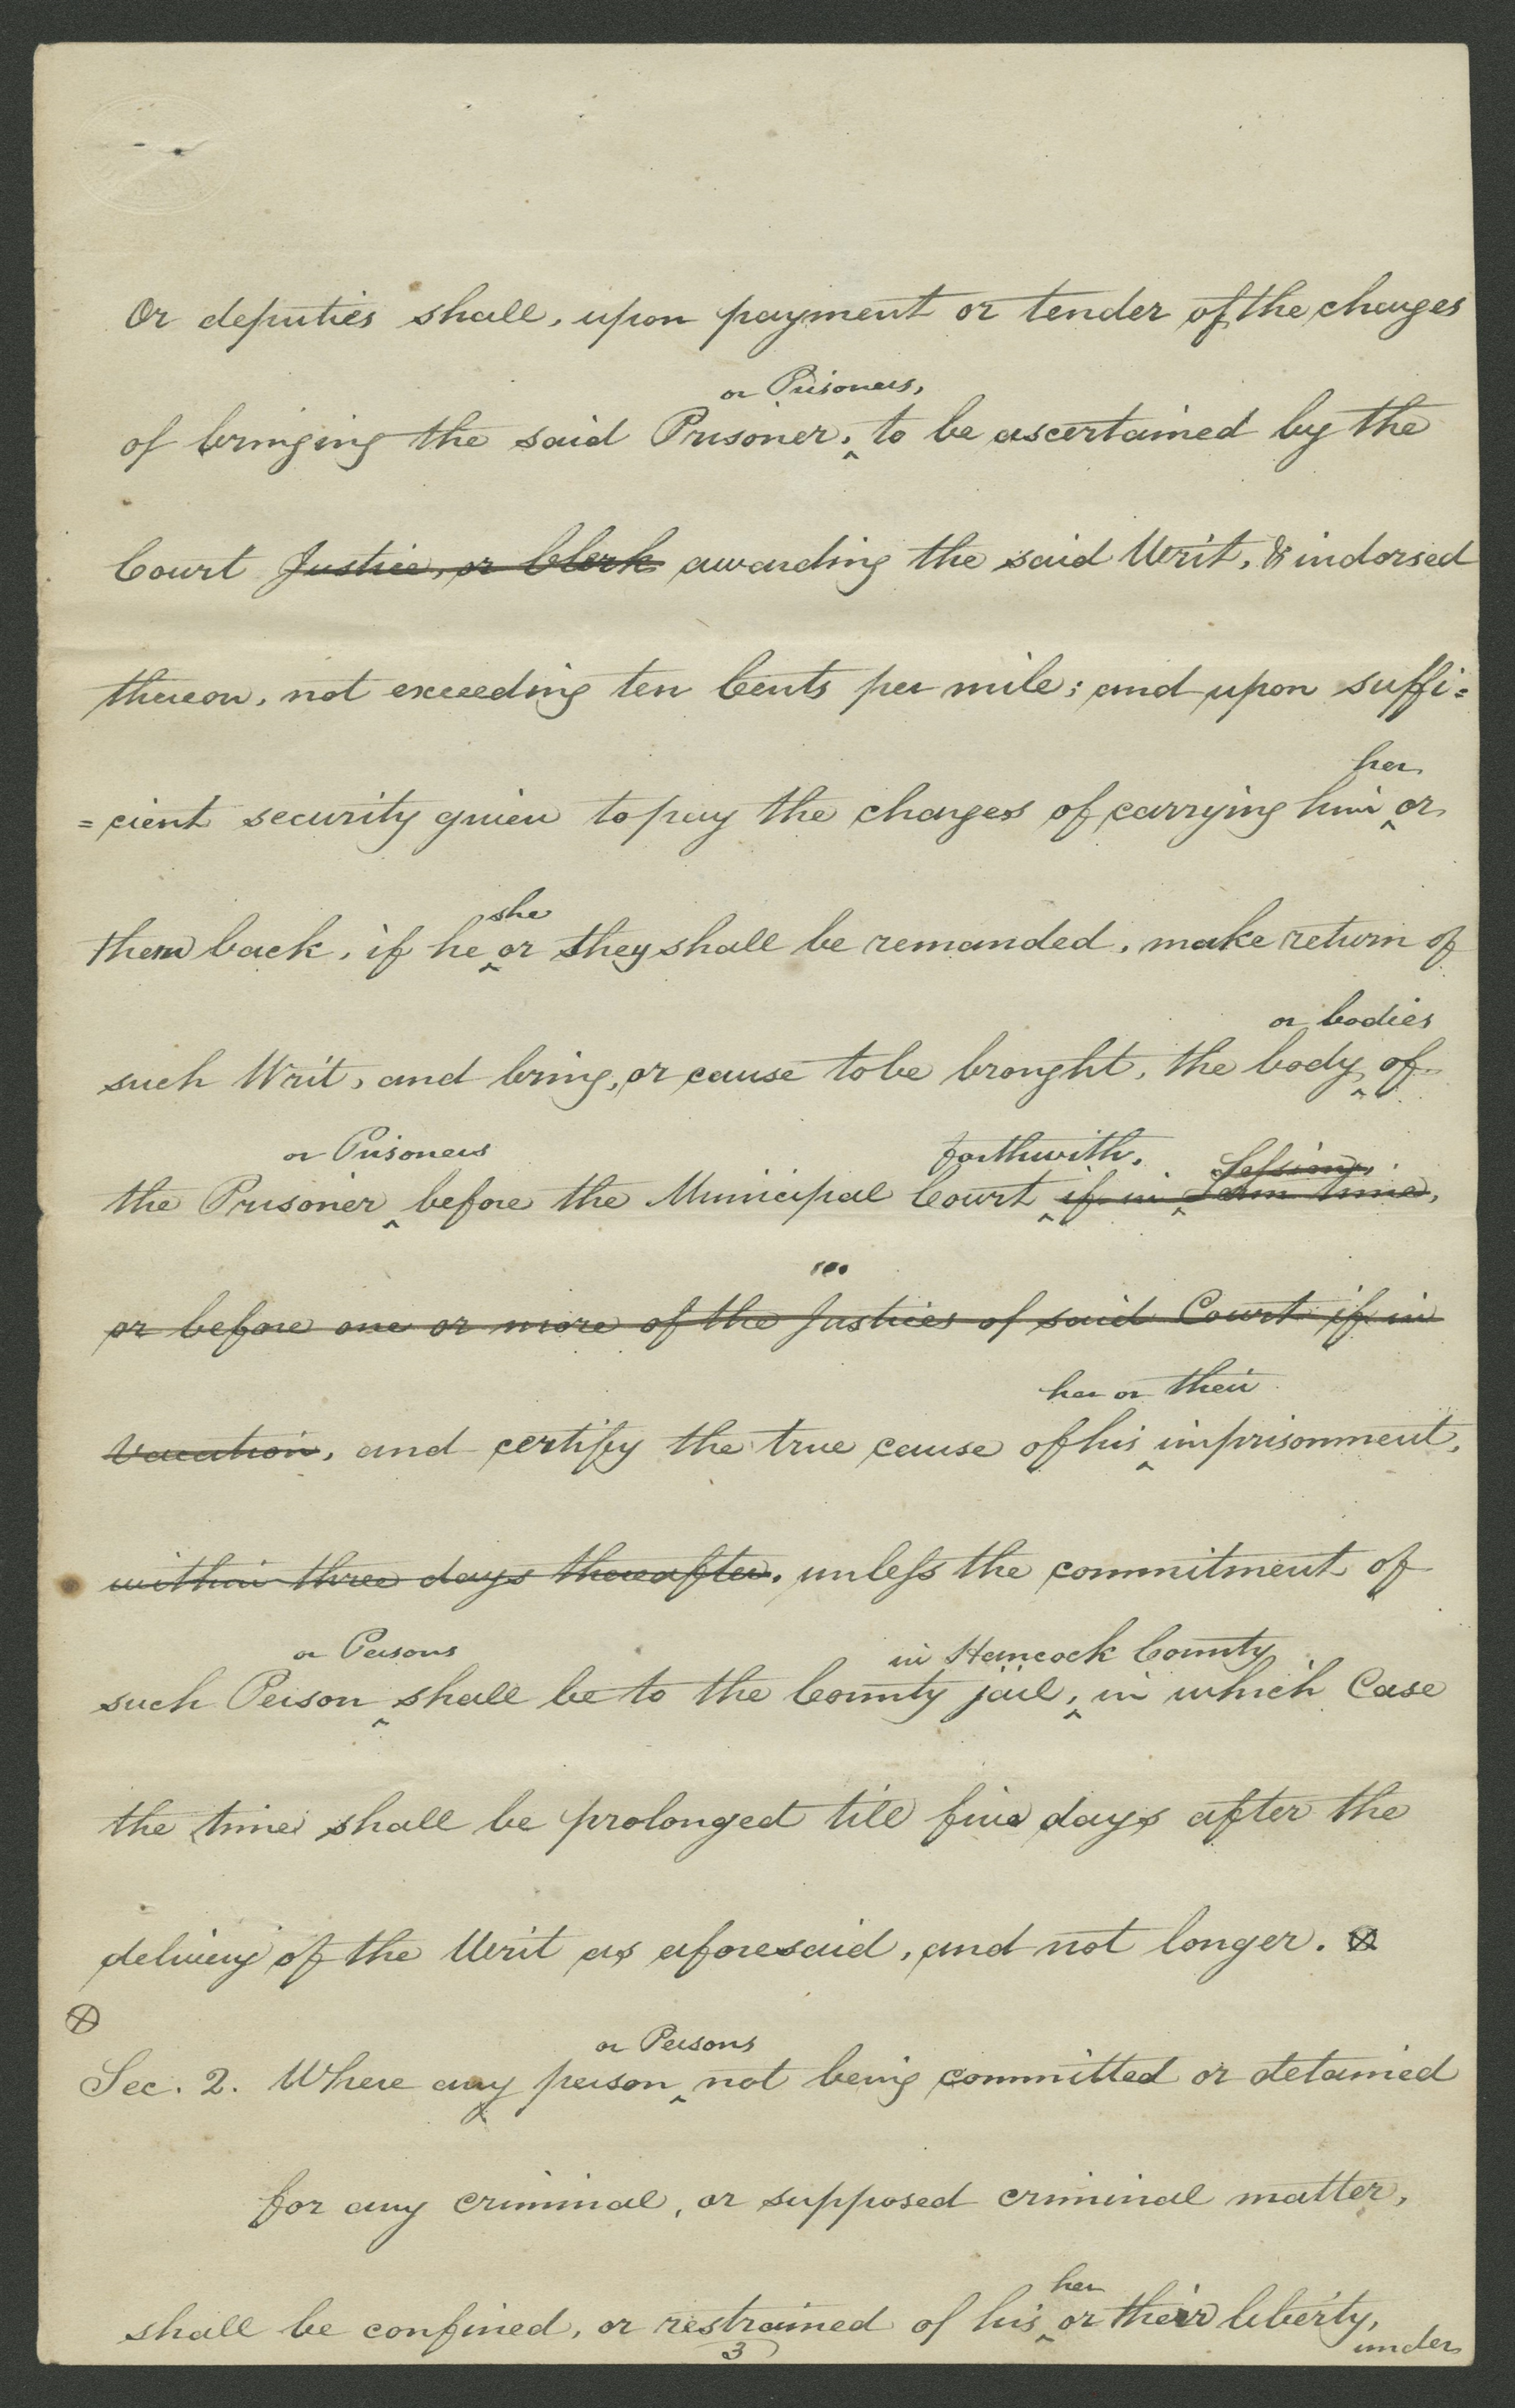 Or deputies shall, upon payment or tender of the charges
or Prisoners,
of bringing the said Prisoner, ‸ to be ascertained by the
Court Justice, or Clerk awarding the said Writ, & indorsed
thereon, not exceeding ten Cents per mile; and upon suffi=
=cient security given to pay the charges of carrying him ‸ or
her
them back, if he ‸ or they shall be remanded, make return of
she
such Writ, and bring, or cause to be brought, the body ‸ of
or bodies
or Prisoners forthwith, Sessions,
the Prisoner ‸ before the Municipal Court ‸ if in ‸ Term time,
or before one or more of the Justices of said Court if in
her or their
Vacation, and certify the true cause of his ‸ imprisonment,
within three days thereafter, unless the commitment of
or Persons in Hancock County
such Person ‸ shall be to the County jail, ‸ in which Case
the time shall be prolonged till five days after the
delivery of the Writ as aforesaid, and not longer. ⊗
⊗
or Persons
Sec. 2. Where any person ‸ not being committed or detained
for any criminal, or supposed criminal matter,
her
shall be confined, or restrained of his ‸ or their liberty,
3
under